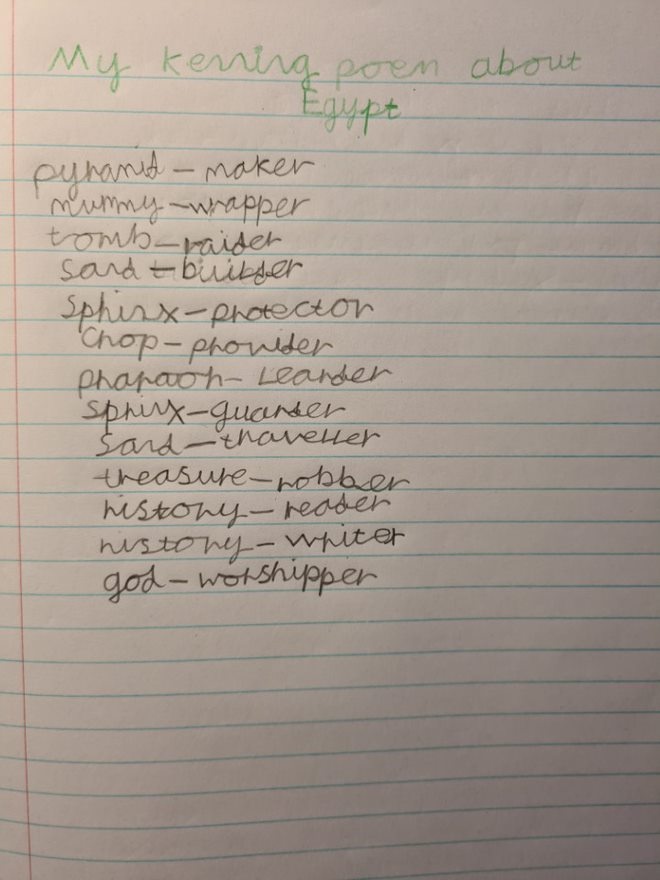 My kenning poem about
Egypt
pyramid - maker
mummy - wrapper
tomb - raider
sand - builder
Sphinx - protector
Chop - provider
pharaoh - Leander
Sphinx - guarder
Sand - traveller
treasure - robber
history - reader
history - writer
god - worshipper